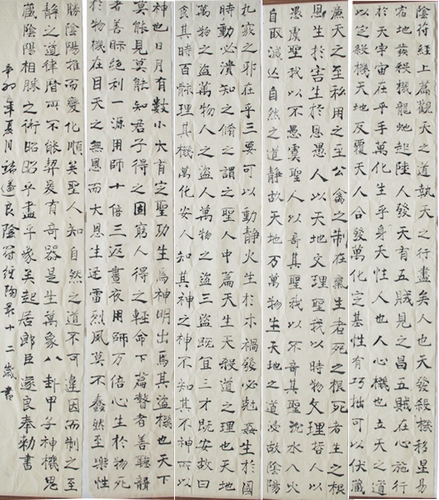 陰符經上篇觀天之道執天之行盡矣也天發殺機移星易
宿地發殺機龍蛇起陸人發天有五賊見之昌五賊在心施行
於天宇宙在乎手萬化生乎身天性人也人心機也立天之道
以定殺機天地反覆天人合發萬化定基性有巧拙可以伏藏
廉天之至私用之至公禽之制在氣生者死之根死者生之根
恩生於害害生於恩愚人以天地文理聖我以時物文理哲人以
愚虞聖我以不愚虞聖人以奇其聖我以不奇其聖沈水入火
自取滅亡自然之道靜故天地萬物生天地之道浸故陰
九竅之邪在乎三要可以動靜火生於木禍發必剋姦生於國
時動必潰知之脩之謂之聖人中篇天生天殺道之理也天地
萬物之盜萬物人之盜人萬物之盜三盜既宜三才既安故曰
食其時百骸理其機萬化安人知其神之神不知其不神所以
神也日月有數小大有定聖功生焉神明出焉其盜機也天下
莫能見莫能知君子得之固窮人得之輕命下篇瞽者善聽聾
者善眎絕利一源用師十倍三返晝夜用師萬倍心生於物死
於物機在目天之無恩而大恩生迅雷烈風莫不蠢然至樂性
勝陰陽推而變化順矣聖人知自然之道不可違因而制之至
靜之道律曆所不能契爰有奇器是生萬象八卦甲子神機鬼
藏陰陽相勝之術昭昭乎盡乎象矣起居郎臣遂良奉勅書
辛卯年夏月褚遂良陰符經陽昊十二歲書